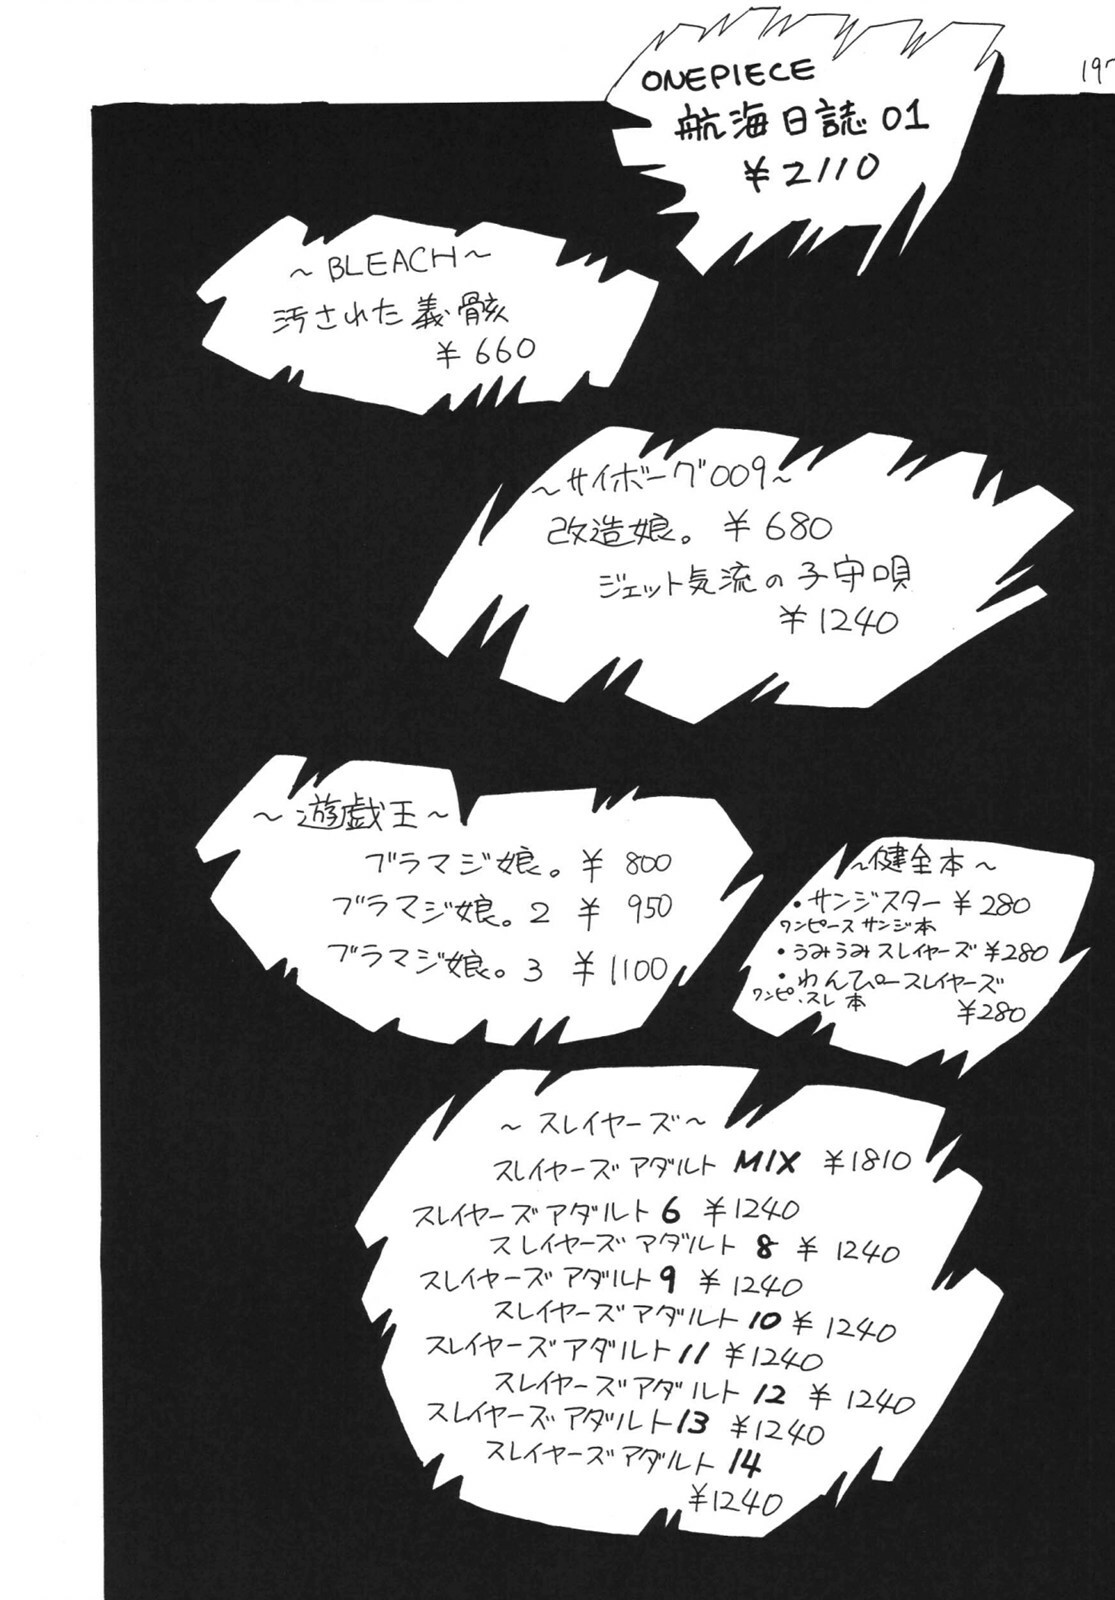 197
ONEPIECE
航海日誌01
¥2110
～BLEACH～
汚された義骸
¥660
～サイボーグ009～
改造娘。¥680
ジェット気流の子守唄
¥1240
～遊戯王～
ブラマジ娘。¥800
ブラマジ娘。2 ¥950
ブラマジ娘。3 ¥1100
～健全本～
・サンジスター ¥280
ワンピース サンジ本
・うみうみスレイヤーズ ¥280
・わんぴースレイヤーズ
ワンピ、スレ本
¥280
～スレイヤーズ～
スレイヤーズアダルト MIX ¥1810
スレイヤーズアダルト6 ¥1240
スレイヤーズアダルト 8 ¥1240
スレイヤーズアダルト9 ¥1240
スレイヤーズアダルト 10 ¥1240
スレイヤーズアダルト11 ¥1240
スレイヤーズアダルト 12 ¥1240
スレイヤーズアダルト13 ¥1240
スレイヤーズアダルト 14
¥1240